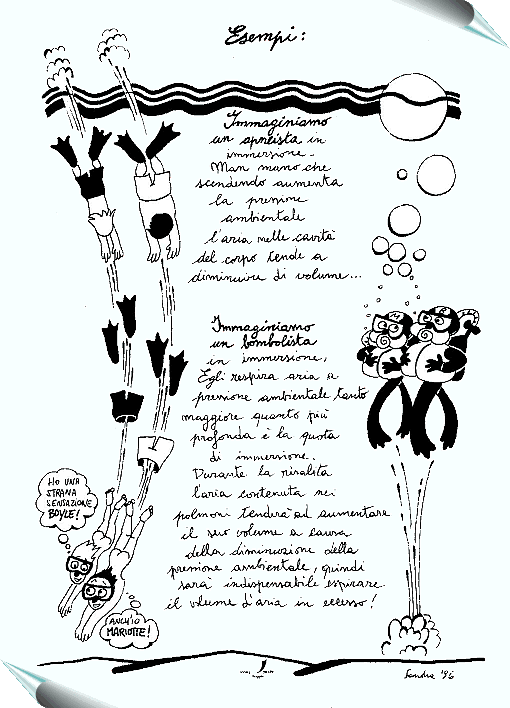 Esempi:
Immaginiamo
un apneista in
immersione.
Man mano che
scendendo aumenta
la pressione
ambientale
l'aria nelle cavità
del corpo tende a
diminuire di volume...
Immaginiamo
un bombolista
in immersione,
Egli respira aria a
pressione ambientale tanto
maggiore quanto più
profonda è la quota
di immersione.
Durante la risalita
l'aria contenuta nei
polmoni tenderà ad aumentare
il suo volume a causa
della diminuzione della
pressione ambientale, quindi
sarà indispensabile espirare
il volume d'aria in eccesso!
HO UNA
STRANA
SENSAZIONE
BOYLE!
ANCH'IO
MARIOTTE!
Sandra '96